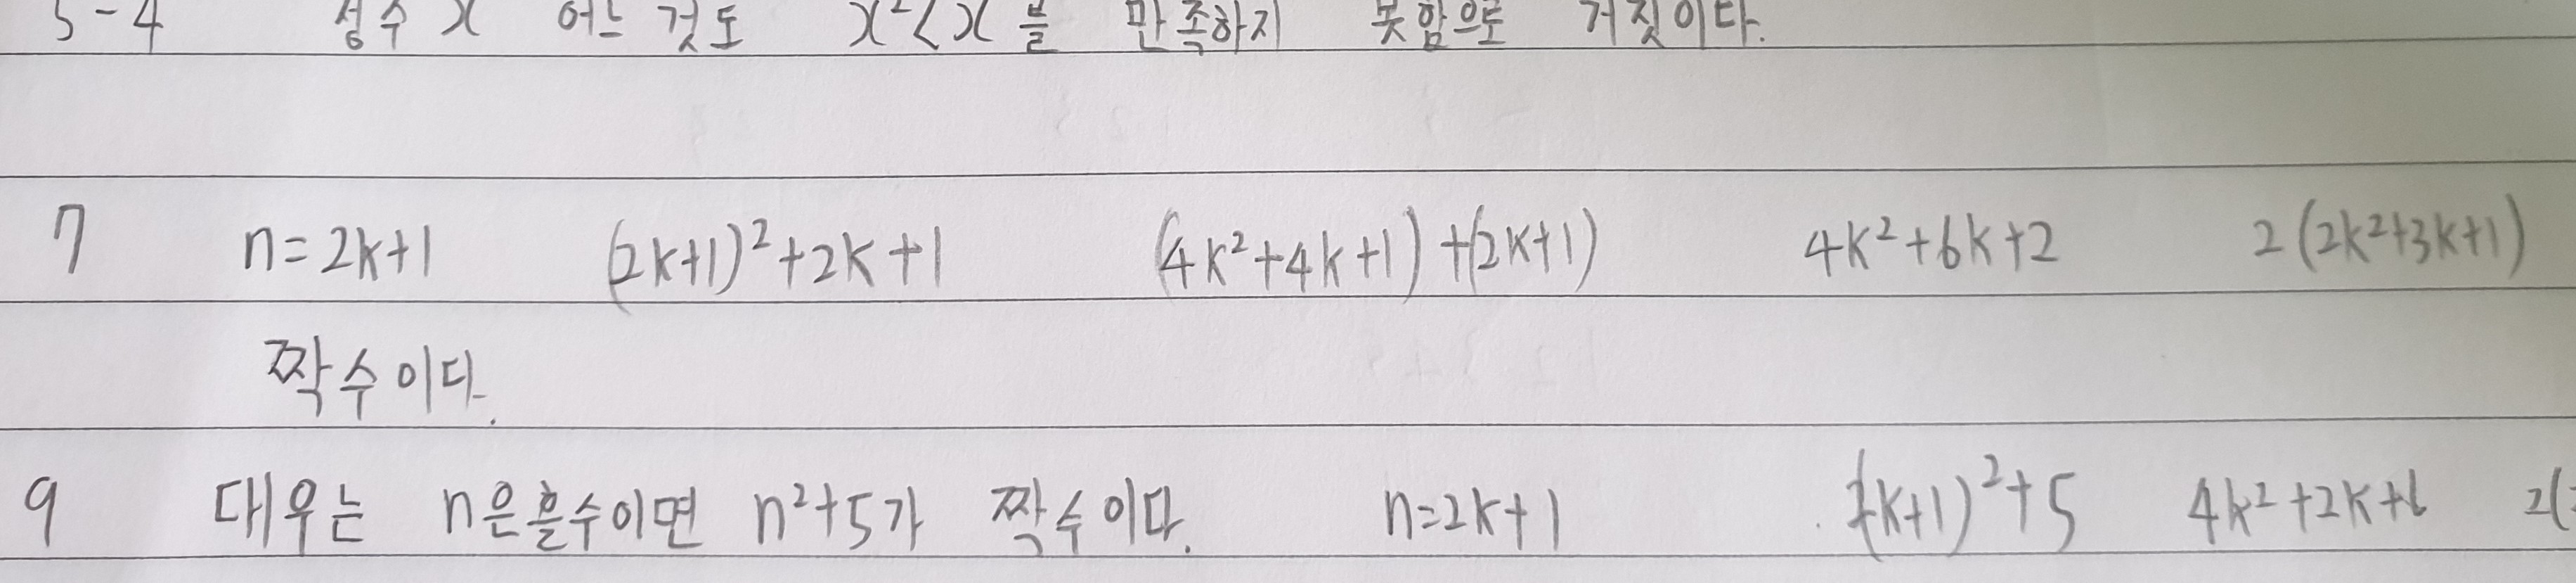 5-4 정수 x 어느 것도 x²<x 를 만족하지 못함으로 거짓이다.
7 n=2k+1 (2k+1)²+2k+1 (4k²+4k+1)+(2k+1) 4k²+6k+2 2(2k²+3k+1)
짝수이다.
9 대우는 n은홀수이면 n²+5가 짝수이다. n=2k+1 (2k+1)²+5 4k²+2k+6 2(